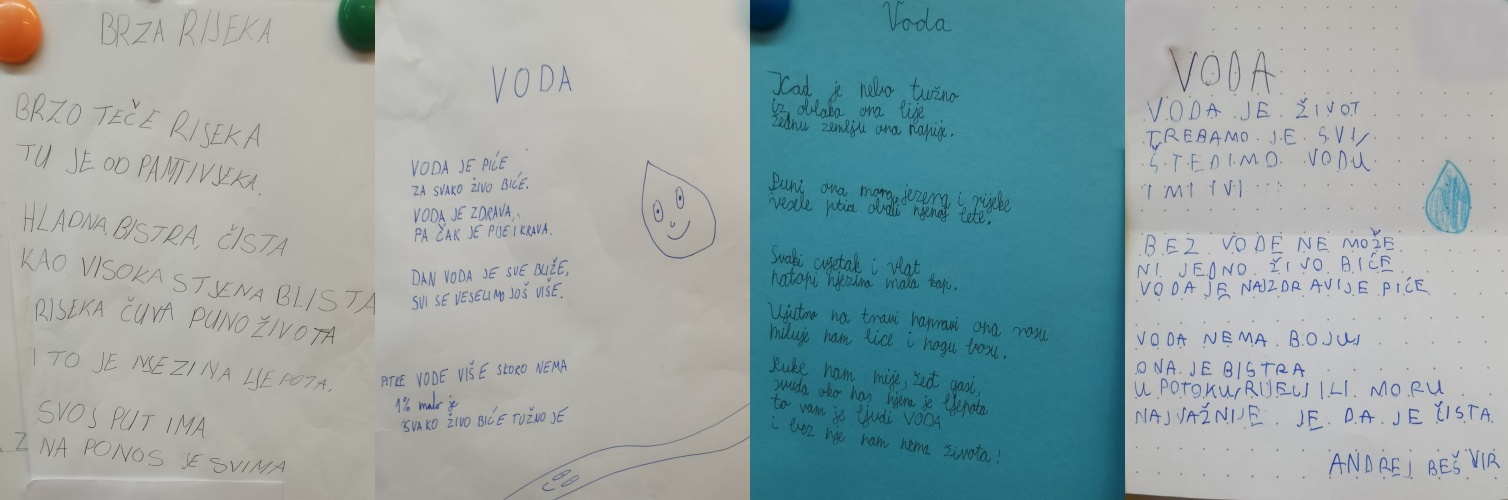 BRZA RIJEKA
BRZO TEČE RIJEKA
TU JE OD PAMTIVJEKA.
HLADNA, BISTRA, ČISTA
KAO VISOKA STJENA BLISTA
RIJEKA ČUVA PUNO ŽIVOTA
I TO JE NJEZINA LJEPOTA.
SVOJ PUT IMA
NA PONOS JE SVIMA
VODA
VODA JE PIĆE
ZA SVAKO ŽIVO BIĆE.
VODA JE ZDRAVA,
PA ČAK JE PIJE I KRAVA.
DAN VODA JE SVE BLIŽE,
SVI SE VESELIMO JOŠ VIŠE.
PITKE VODE VIŠE SKORO NEMA
1% malo je
SVAKO ŽIVO BIĆE TUŽNO JE
Voda
Kad je nebo tužno
iz oblaka ona lije
žednu zemlju ona napije.
Puni ona mora, jezera i rijeke
vesele ptice okoli njene lete.
Svaki cvjetak i vlat
natopi njezina mala kap.
Ujutro na travi napravi ona rosu
miluje nam lice i nogu bosu.
Ruke nam mije, žeđ gasi,
svuda oko nas njena je ljepota
to vam je ljudi VODA
i bez nje nam nema života!
VODA
VODA JE ŽIVOT
TREBAMO JE SVI,
ŠTEDIMO VODU
I MI I VI
BEZ VODE NE MOŽE
NI JEDNO ŽIVO BIĆE
VODA JE NAJZDRAVIJE PIĆE
VODA NEMA BOJU
ONA JE BISTRA
U POTOKU, RIJECI ILI MORU
NAJVAŽNIJE JE DA JE ČISTA
ANDREJ BEŠVIR